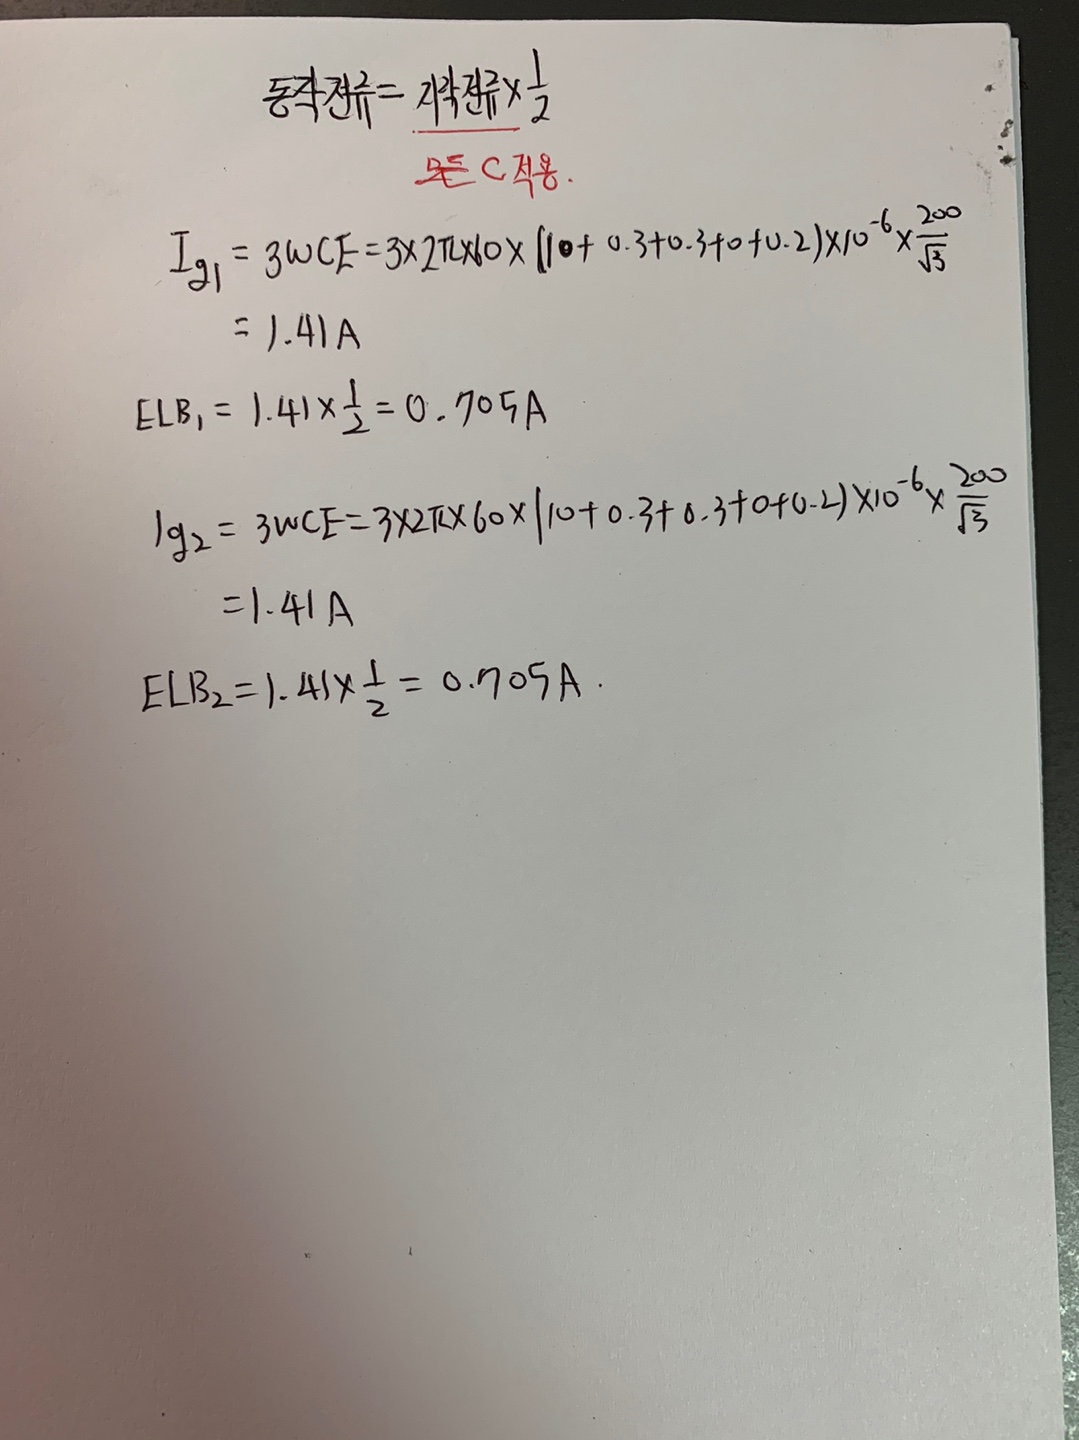 동작전류 = 지락전류 × 1/2
모든 C 적용.
Ig1 = 3WCE = 3×2π×60×(10+0.3+0.3+0+0.2)×10^-6 × 200/√3
= 1.41A
ELB1 = 1.41×1/2 = 0.705A
Ig2 = 3WCE = 3×2π×60×(10+0.3+0.3+0+0.2)×10^-6 × 200/√3
= 1.41A
ELB2 = 1.41×1/2 = 0.705A.